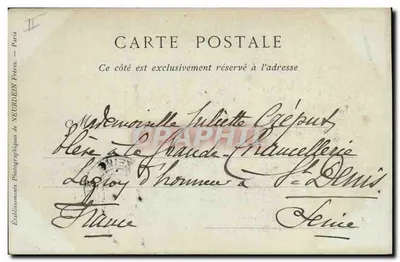 II
CARTE POSTALE
Ce côté est exclusivement réservé à l'adresse
Mademoiselle Juliette Créput
élève à la Grande Chancellerie
Légion d'honneur à St Denis
France Seine
Établissements Photographiques de NEURDEIN Frères. — Paris